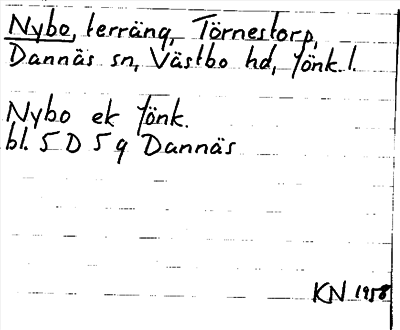 Nybo, terräng, Törnestorp,
Dannäs sn, Västbo hd, Jönk. l.
Nybo ek Jönk.
bl. 5 D 5 g Dannäs
KN 1958